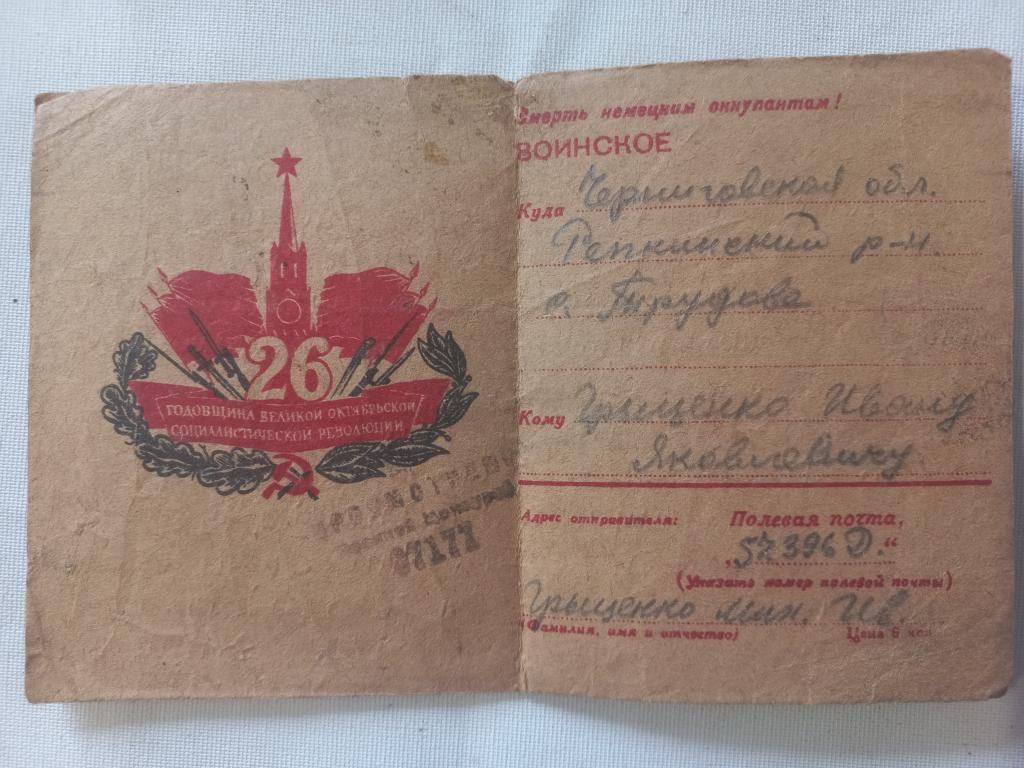 26
ГОДОВЩИНА ВЕЛИКОЙ ОКТЯБРЬСКОЙ
СОЦИАЛИСТИЧЕСКОЙ РЕВОЛЮЦИИ
ПРОСМОТРЕНО
Военной Цензурой
27177
Смерть немецким оккупантам!
ВОИНСКОЕ
Куда Черниговская обл.
Репкинский р-н.
с. Трудова
Кому Грищенко Ивану
Яковлевичу
Адрес отправителя: Полевая почта,
„57396 Д.“
(Указать номер полевой почты)
Грыщенко Ив.
(Фамилия, имя и отчество) Цена 6 коп